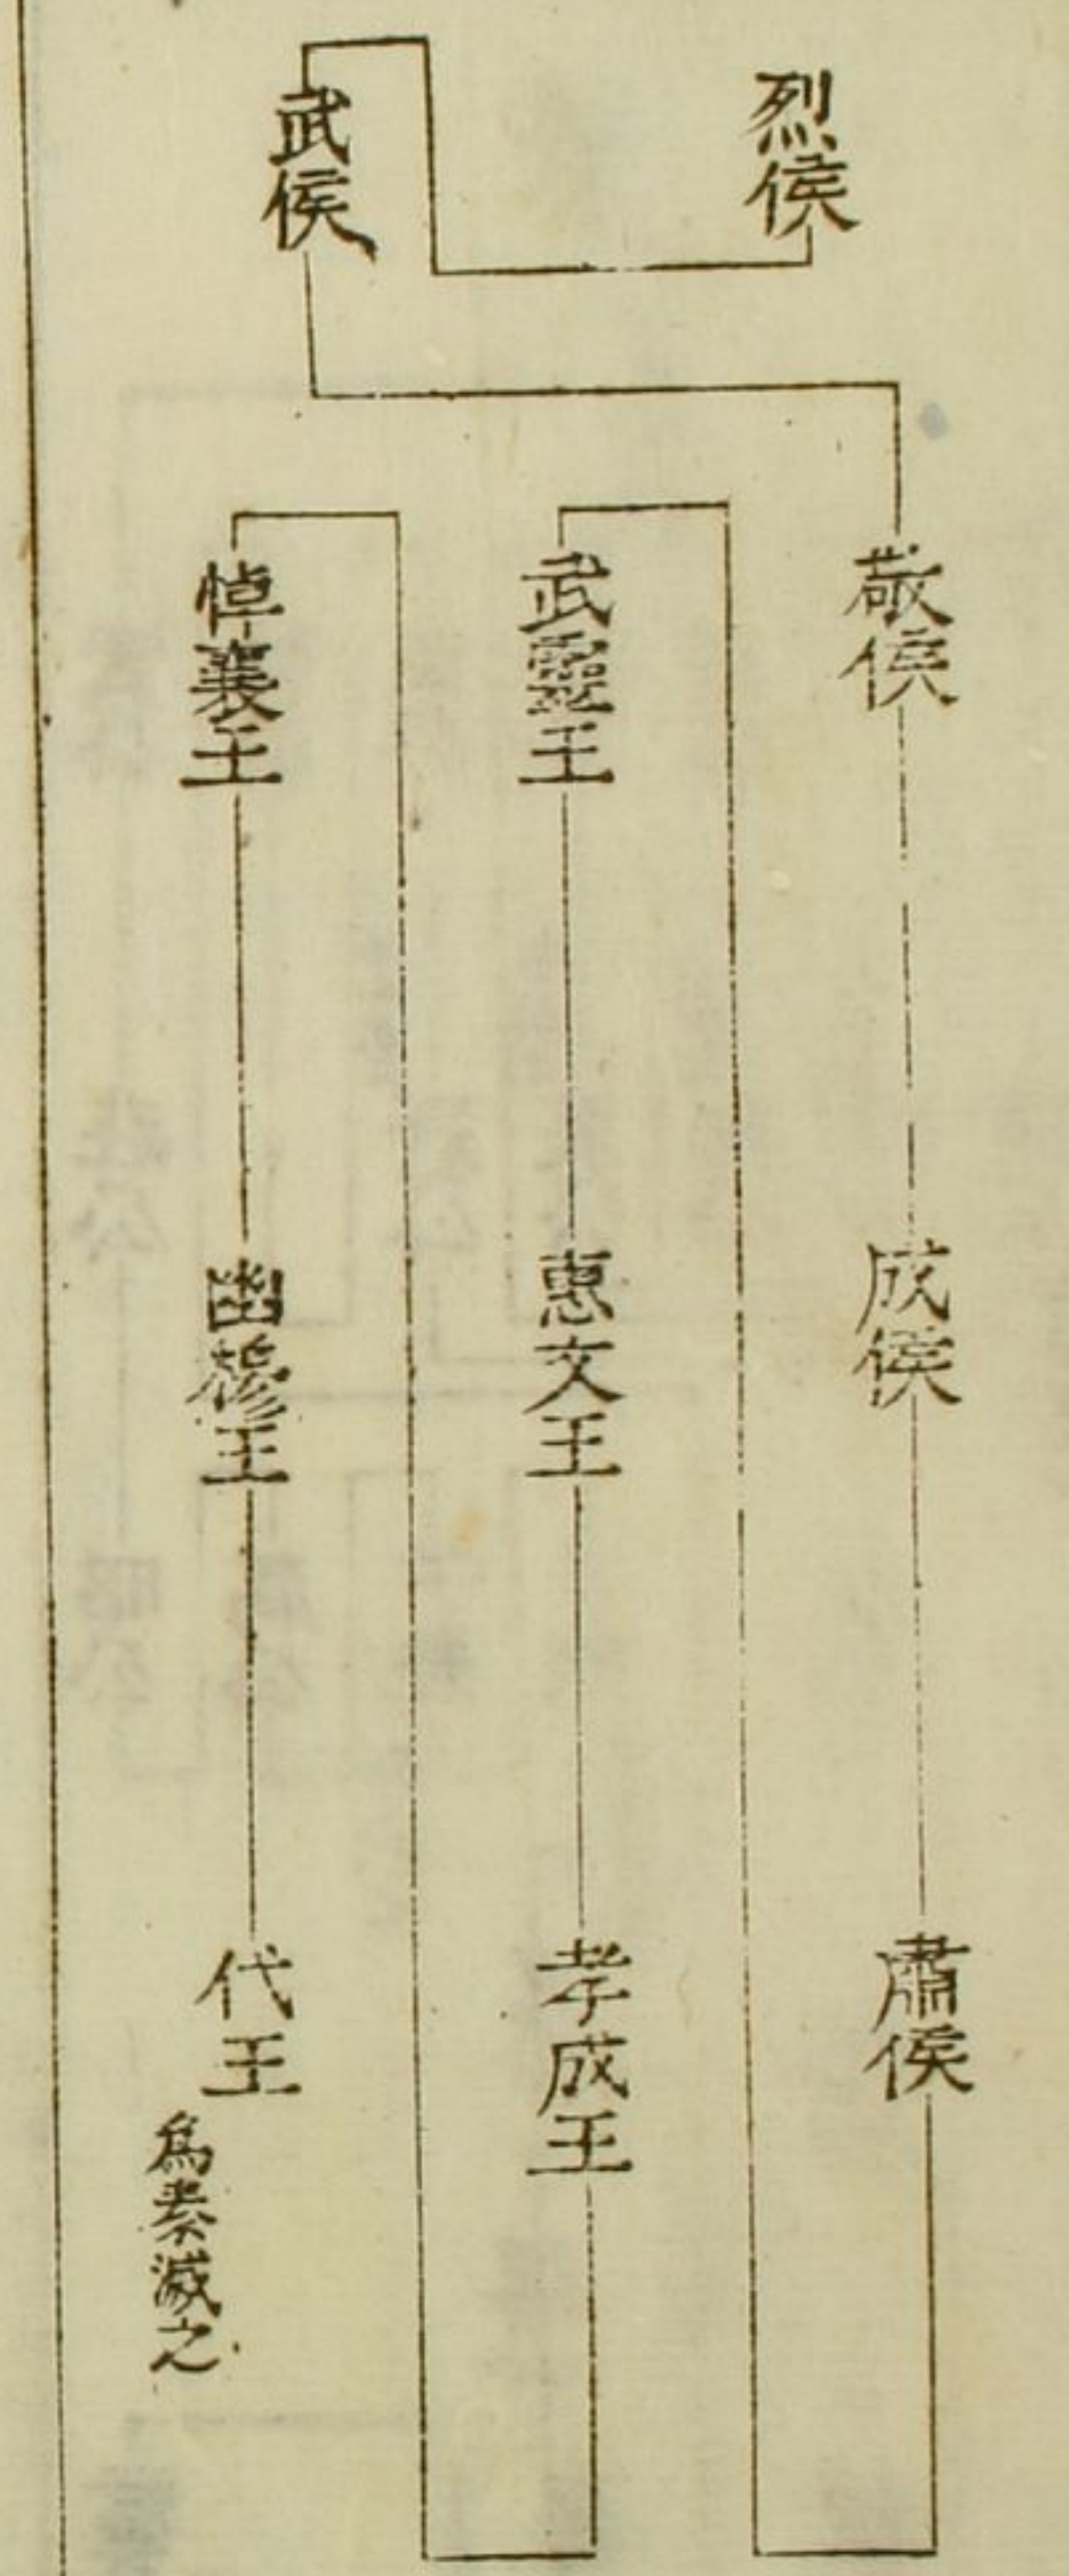 烈侯
武侯
敬侯
成侯
肅侯
武靈王
惠文王
孝成王
悼襄王
幽穆王
代王
爲秦滅之